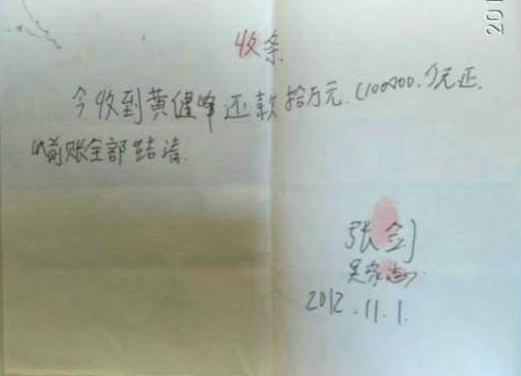 201
收条
今收到黄健峰还款拾万元.(100000.)元正.
以前账全部结清.
张剑
吴家
2012.11.1.